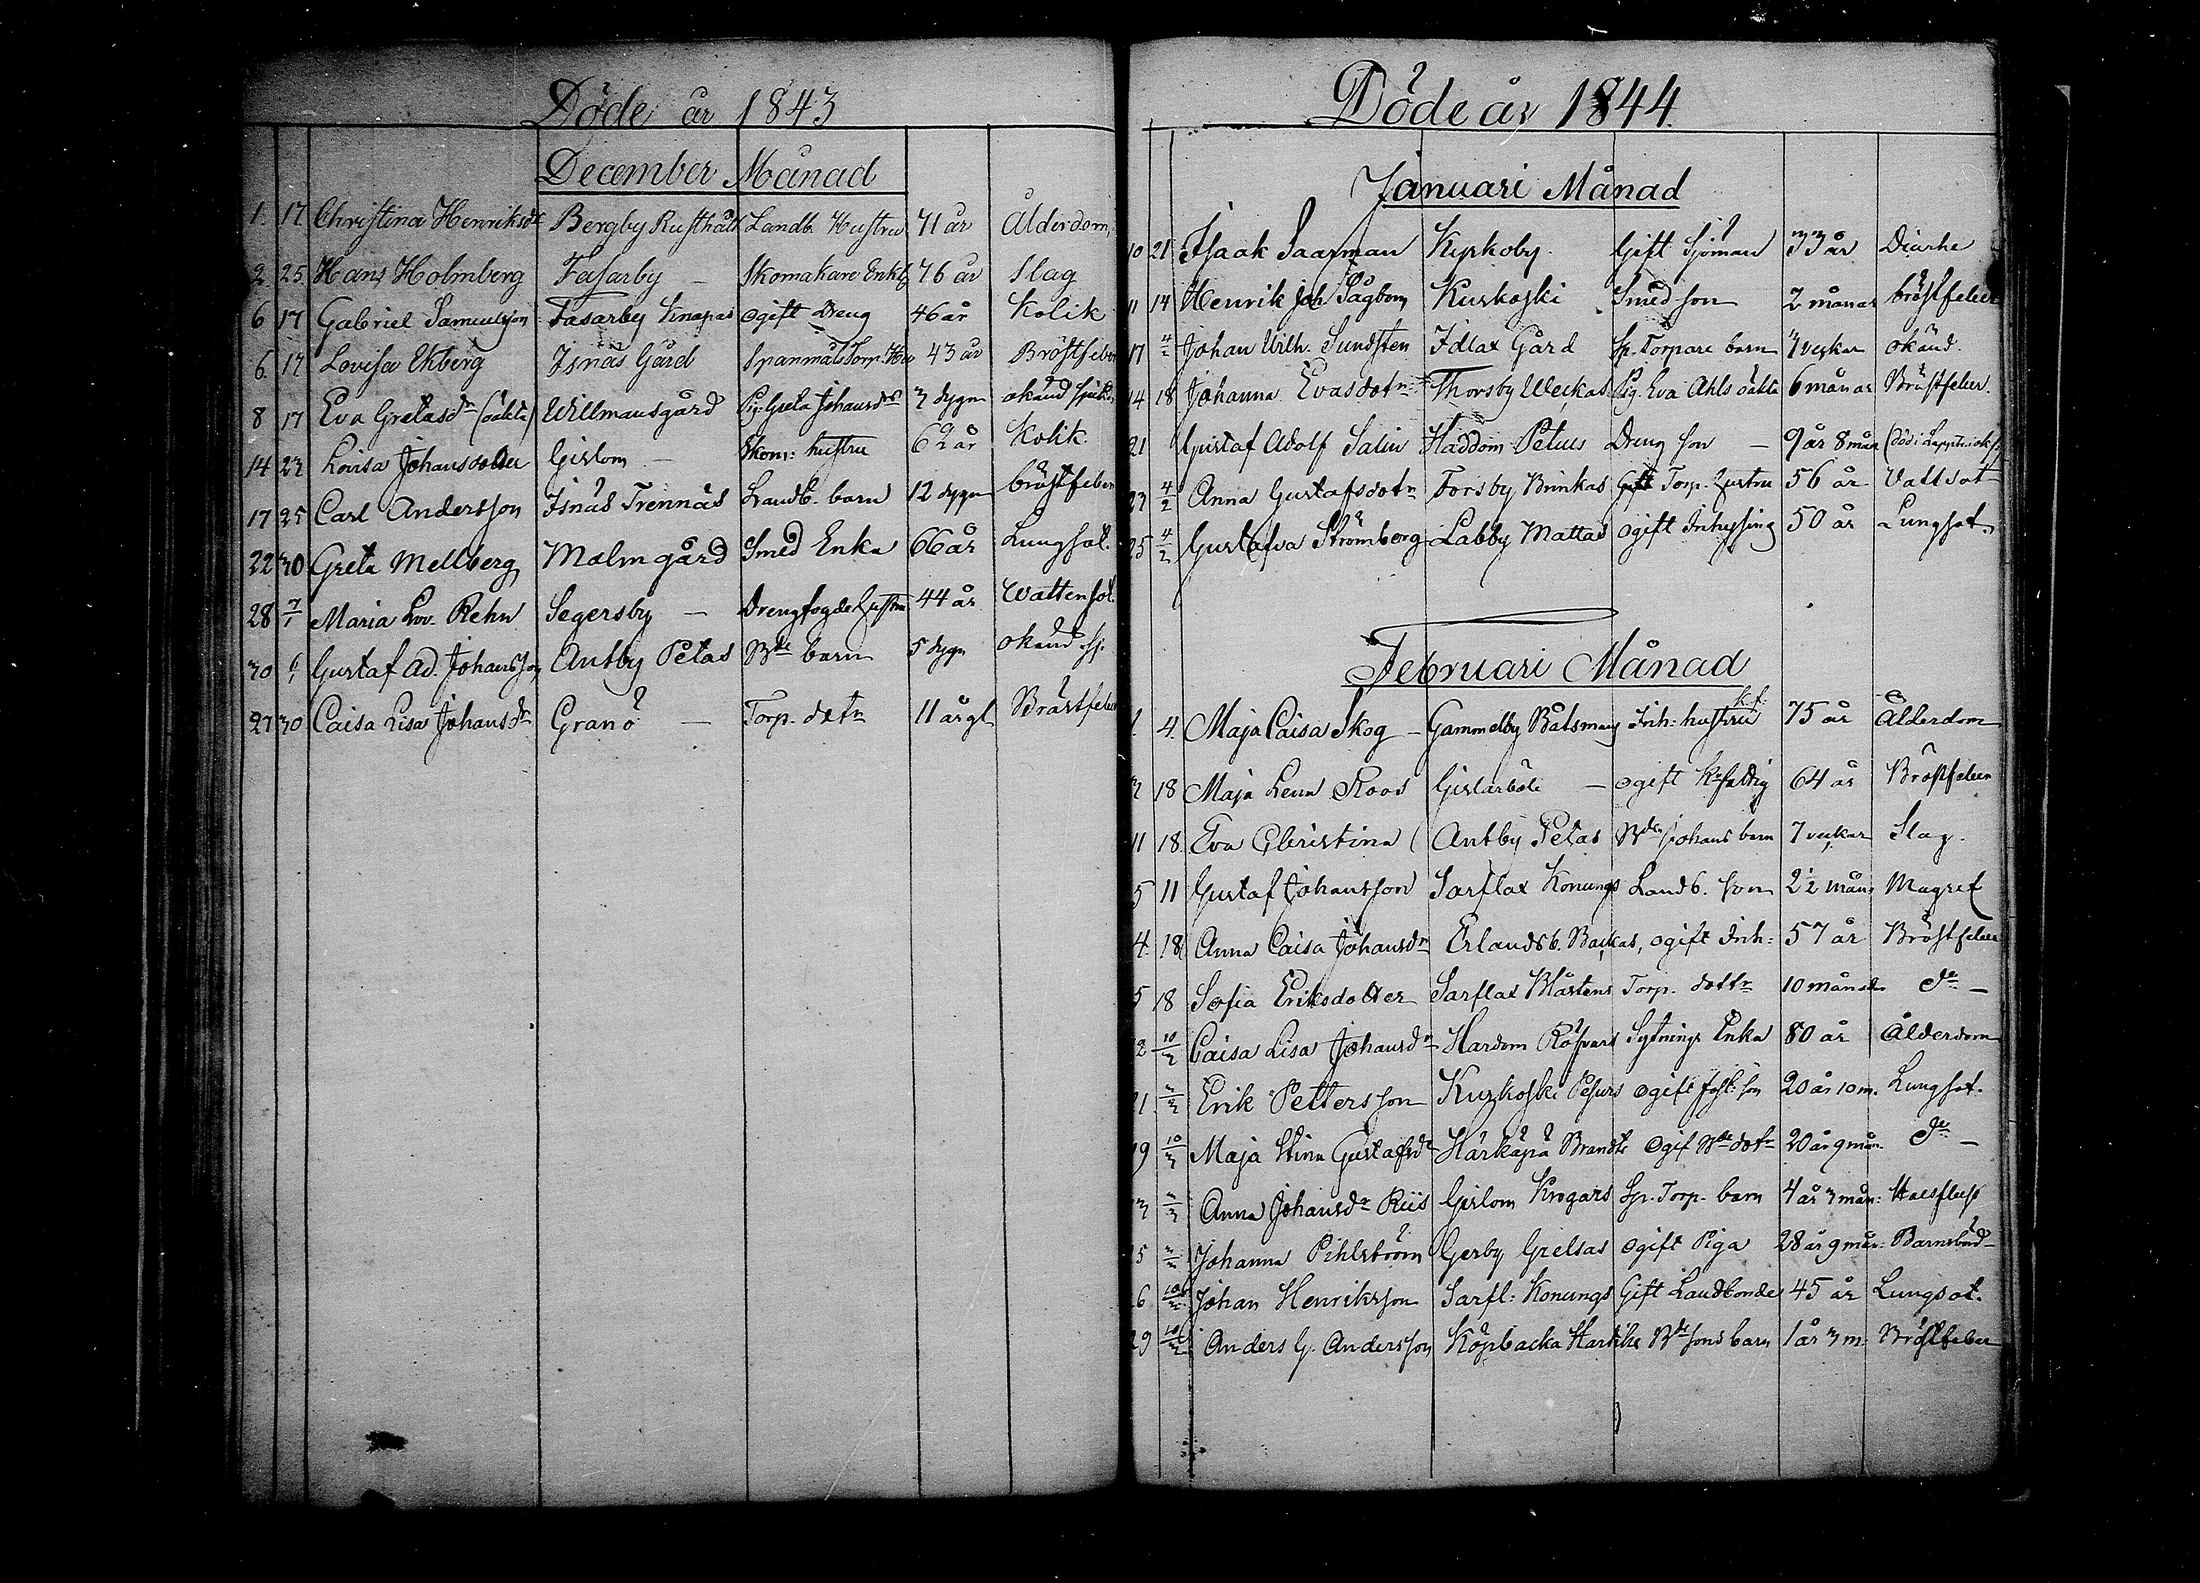 Döde år 1843
December Månad
1. 17. Christina Henriksdr Bergby Rusthåll Landb. Hustru 71 år Ålderdom
2. 25. Hans Holmberg Fasarby — Skomakare Enkl. 76 år Slag
6 17 Gabriel Samuelsson Fasarby Knapas ogift Dreng 46 år Kolik
6. 17 Lovisa Ekberg Isnäs Gård Spanmåls Torp. Hu 43 år Bröstfeber
8 17 Eva Gretasdr (oäkta) Willmansgård Pig. Greta Johansdr 3 dygn okänd sjukd.
14 23 Lovisa Johansdotter Gislom — Skom: hustru 62 år Kolik
17 25 Carl Andersson Isnäs Trennäs Landb. barn 12 dygn bröstfeber
22 30 Greta Mellberg Malmgård Smed Enka 66 år Lungsot.
28 7/1 Maria Lov. Rehn Segersby — Drengfogde Hustru 44 år Wattensot.
30 6/1 Gustaf Ad. Johansson Antby Petas Bde barn 5 dygn okänd sj.
27 30 Caisa Lisa Johansdr Granö — Torp. dotr 11 år gl Bröstfeber
Döde år 1844.
Januari Månad
10 21 Isaak Saarman Kyrkoby. Gift Sjöman 33 år Diarhe
11 14 Henrik Joh. Sågbom Kuskoski Smed son 2 månar bröstfeber
17 4/2 Johan Wilh. Sundsten Idlax Gård Sp. Torpare barn 3 veckar okänd.
14 18 Johanna Evasdotr Thorsby Weckas Pig. Eva Ahls oäkta 6 månar Bröstfeber.
21 Gustaf Adolf Salin Haddom Petus Dreng son — 9 år 8 mån (död i
23 4/2 Anna Gustafsdotr Forsby Brinkas Gift Torp. hustru 56 år Vattsot
25 4/2 Gustafva Strömberg Labby Mattas ogift Inhysing 50 år Lungsot
Februari Månad
1. 4. Maja Caisa Skog — Gammelby Båtsmans Inh: hustru k.f. 75 år Ålderdom
3 18 Maja Lena Roos Gislarböle — ogift Krfattig 64 år Bröstfeber
11 18. Eva Christina ( Antby Petas Bden Johans barn 7 veckar Slag.
5 11 Gustaf Johansson Sarflax Konungs Landb. son 2 1/2 mån. Magref
4. 18 Anna Caisa Johansdr Erlandsb. Backas, ogift Inh: 57 år Bröstfeber
5 18 Sofia Eriksdotter Sarflax Mårtens Torp. dottr 10 månader do —
2 10/3 Caisa Lisa Johansdr Hardom Räfvars Sytnings Enka 80 år Ålderdom
21 3/3 Erik Pettersson Kuskoski Pesurs ogift son 20 år 10 m. Lungsot.
19 10/3 Maja Stina Gustafsdr Härkäpä Brandts Ogif Bde dotr 20 år 9 mån. do —
3 3/3 Anna Johansdr Riis Gislom Krogars Sp. Torp. barn 4 år 3 mån: Halsfluss
25 3/3 Johanna Pihlström Gerby Grelsas ogift Piga 28 år 9 mån: Barnsbörd
26 10/3 Johan Henriksson Sarfl: Konungs Gift Landbonde 45 år Lungsot.
29 10/3 Anders G. Andersson Köpbacka Bde sons barn 1 år 3 m. Bröstfeber